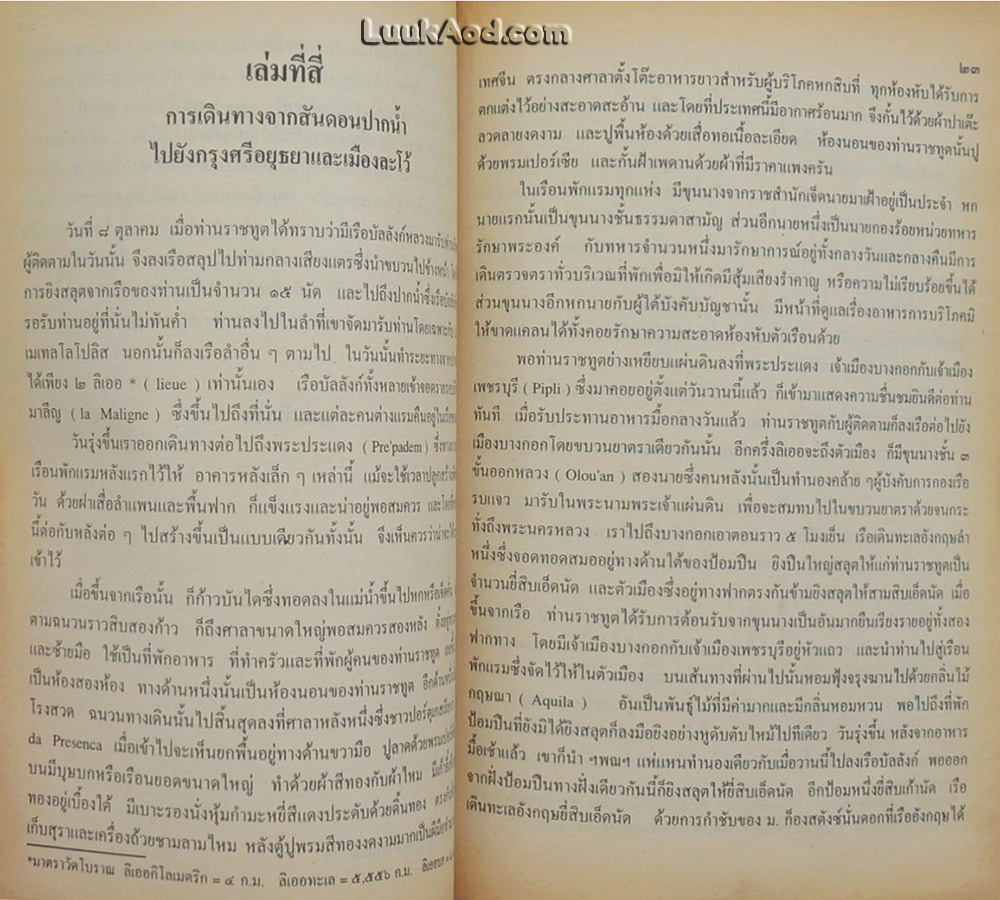 LuukAod.com
เล่มที่สี่
การเดินทางจากสันดอนปากน้ำ
ไปยังกรุงศรีอยุธยาและเมืองละโว้
วันที่ ๘ ตุลาคม เมื่อท่านราชทูตได้ทราบว่ามีเรือบัลลังก์หลวงมารับท่าน
ผู้ติดตามในวันนั้น จึงลงเรือสลุปไปท่ามกลางเสียงแตรซึ่งนำขบวนไปข้างหน้า
การยิงสลุตจากเรือของท่านเป็นจำนวน ๑๕ นัด และไปถึงปากน้ำซึ่งเรือบัลลังก์
รอรับท่านอยู่ที่นั่นไม่ทันค่ำ ท่านลงไปในลำที่เขาจัดมารับท่านโดยเฉพาะ
เมเทลโลโปลิส นอกนั้นก็ลงเรือลำอื่น ๆ ตามไป ในวันนั้นทำระยะทาง
ได้เพียง ๒ ลิเออ * ( lieue ) เท่านั้นเอง เรือบัลลังก์ทั้งหลายเข้าจอด
มาลีญ ( la Maligne ) ซึ่งขึ้นไปถึงที่นั่น และแต่ละคนต่างแรมคืนอยู่ในเรือ
วันรุ่งขึ้นเราออกเดินทางต่อไปถึงพระประแดง ( Pre'padem )
เรือนพักแรมหลังแรกไว้ให้ อาคารหลังเล็ก ๆ เหล่านี้ แม้จะใช้เวลาปลูกสร้าง
วัน ด้วยฝาเสื่อลำแพนและพื้นฟาก ก็แข็งแรงและน่าอยู่พอสมควร และโดยที่
นี้ต่อกับหลังต่อ ๆ ไปสร้างขึ้นเป็นแบบเดียวกันทั้งนั้น จึงเห็นควรว่าน่าจะ
เข้าไว้
เมื่อขึ้นจากเรือนั้น ก็ก้าวบันไดซึ่งทอดลงในแม่น้ำขึ้นไปหกหรือเจ็ดขั้น
ตามฉนวนราวสิบสองก้าว ก็ถึงศาลาขนาดใหญ่พอสมควรสองหลัง
และซ้ายมือ ใช้เป็นที่พักอาหาร ที่ทำครัวและที่พักผู้คนของท่านราชทูต
เป็นห้องสองห้อง ทางด้านหนึ่งนั้นเป็นห้องนอนของท่านราชทูต อีกด้าน
โรงสวด ฉนวนทางเดินนั้นไปสิ้นสุดลงที่ศาลาหลังหนึ่งซึ่งชาวปอร์ตุเกส
da Presenca เมื่อเข้าไปจะเห็นยกพื้นอยู่ทางด้านขวามือ ปูลาดด้วยพรม
บนมีบุษบกหรือเรือนยอดขนาดใหญ่ ทำด้วยผ้าสีทองกับผ้าไหม
ทองอยู่เบื้องใต้ มีเบาะรองนั่งหุ้มกำมะหยี่สีแดงประดับด้วยดิ้นทอง
เก็บสุราและเครื่องถ้วยชามลามไหม หลังตู้ปูพรมสีทองงดงามมากเป็นฝีมือ
*มาตราวัดโบราณ ลิเออกิโลเมตริก = ๔ ก.ม. ลิเออทะเล = ๕,๕๕๖ ก.ม.
๒๓
เทศจีน ตรงกลางศาลาตั้งโต๊ะอาหารยาวสำหรับผู้บริโภคหกสิบที่ ทุกห้องหับได้รับการ
ตกแต่งไว้อย่างสะอาดสะอ้าน และโดยที่ประเทศนี้มีอากาศร้อนมาก จึงกั้นไว้ด้วยผ้าปาเต๊ะ
ลวดลายงดงาม และปูพื้นห้องด้วยเสื่อทอเนื้อละเอียด ห้องนอนของท่านราชทูตนั้นปู
ด้วยพรมเปอร์เซีย และกั้นฝ้าเพดานด้วยผ้าที่มีราคาแพงครัน
ในเรือนพักแรมทุกแห่ง มีขุนนางจากราชสำนักเจ็ดนายมาเฝ้าอยู่เป็นประจำ หก
นายแรกนั้นเป็นขุนนางชั้นธรรมดาสามัญ ส่วนอีกนายหนึ่งเป็นนายกองร้อยหน่วยทหาร
รักษาพระองค์ กับทหารจำนวนหนึ่งมารักษาการณ์อยู่ทั้งกลางวันและกลางคืนมีการ
เดินตรวจตราทั่วบริเวณที่พักเพื่อมิให้เกิดมีสุ้มเสียงรำคาญ หรือความไม่เรียบร้อยขึ้นได้
ส่วนขุนนางอีกหกนายกับผู้ใต้บังคับบัญชานั้น มีหน้าที่ดูแลเรื่องอาหารการบริโภคมิ
ให้ขาดแคลนได้ทั้งคอยรักษาความสะอาดห้องหับตัวเรือนด้วย
พอท่านราชทูตย่างเหยียบแผ่นดินลงที่พระประแดง เจ้าเมืองบางกอกกับเจ้าเมือง
เพชรบุรี ( Pipli ) ซึ่งมาคอยอยู่ตั้งแต่วันวานนี้แล้ว ก็เข้ามาแสดงความชื่นชมยินดีต่อท่าน
ทันที เมื่อรับประทานอาหารมื้อกลางวันแล้ว ท่านราชทูตกับผู้ติดตามก็ลงเรือต่อไปยัง
เมืองบางกอกโดยขบวนยาตราเดียวกันนั้น อีกครึ่งลิเออจะถึงตัวเมือง ก็มีขุนนางชั้น ๓
ขั้นออกหลวง ( Olou'an ) สองนายซึ่งคนหลังนั้นเป็นทำนองคล้าย ๆผู้บังคับการกองเรือ
รบแจว มารับในพระนามพระเจ้าแผ่นดิน เพื่อจะสมทบไปในขบวนยาตราด้วยจนกระ
ทั่งถึงพระนครหลวง เราไปถึงบางกอกเอาตอนราว ๕ โมงเย็น เรือเดินทะเลอังกฤษลำ
หนึ่งซึ่งจอดทอดสมออยู่ทางด้านใต้ของป้อมปืน ยิงปืนใหญ่สลุตให้แก่ท่านราชทูตเป็น
จำนวนยี่สิบเอ็ดนัด และตัวเมืองซึ่งอยู่ทางฟากตรงกันข้ามยิงสลุตให้สามสิบเอ็ดนัด เมื่อ
ขึ้นจากเรือ ท่านราชทูตได้รับการต้อนรับจากขุนนางเป็นอันมากยืนเรียงรายอยู่ทั้งสอง
ฟากทาง โดยมีเจ้าเมืองบางกอกกับเจ้าเมืองเพชรบุรีอยู่หัวแถว และนำท่านไปสู่เรือน
พักแรมซึ่งจัดไว้ให้ในตัวเมือง บนเส้นทางที่ผ่านไปนั้นหอมฟุ้งจรุงฆานไปด้วยกลิ่นไม้
กฤษณา ( Aquila ) อันเป็นพันธุ์ไม้ที่มีค่ามากและมีกลิ่นหอมหวน พอไปถึงที่พัก
ป้อมปืนที่ยังมิได้ยิงสลุตก็ลงมือยิงอย่างหูดับตับไหม้ไปทีเดียว วันรุ่งขึ้น หลังจากอาหาร
มื้อเช้าแล้ว เขาก็นำ ฯพณฯ แห่แหนทำนองเดียวกับเมื่อวานนี้ไปลงเรือบัลลังก์ พอออก
จากฝั่งป้อมปืนทางฝั่งเดียวกันนี้ก็ยิงสลุตให้ยี่สิบเอ็ดนัด อีกป้อมหนึ่งยี่สิบเก้านัด เรือ
เดินทะเลอังกฤษยี่สิบเอ็ดนัด ด้วยการกำชับของ ม. ก็องสตังซ์นั่นดอกที่เรืออังกฤษได้